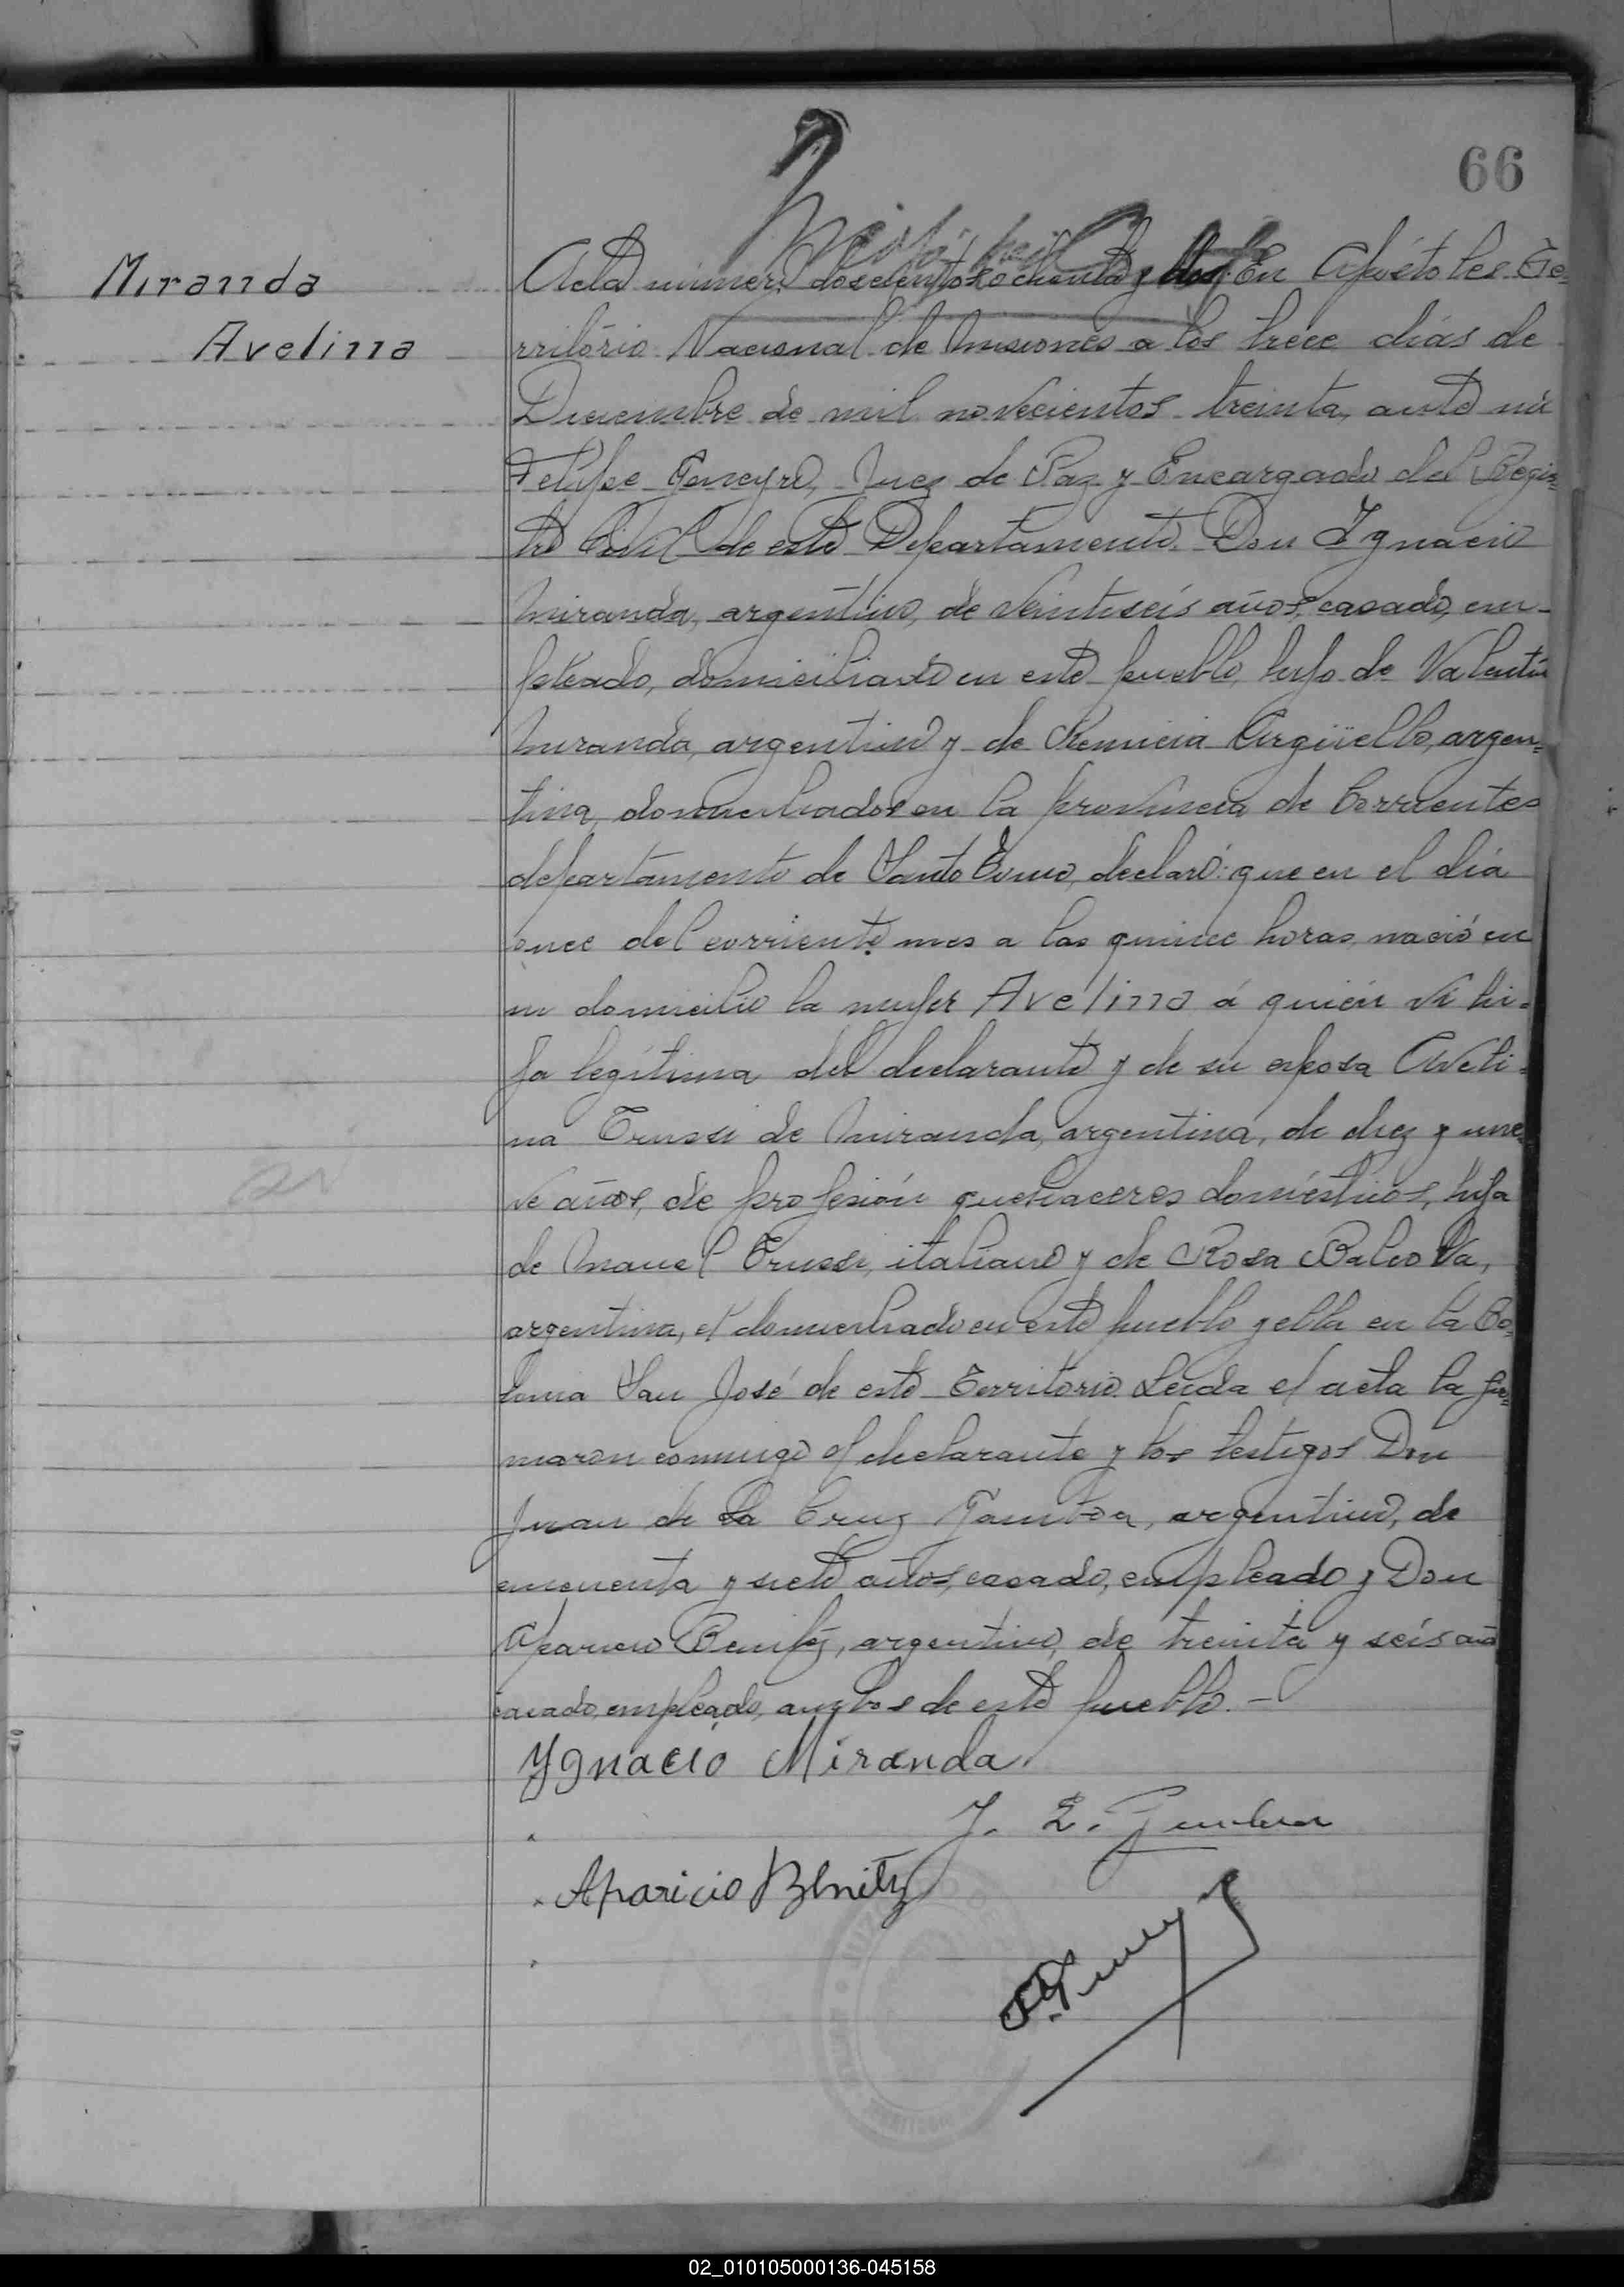 66
Miranda
Avelina
Acta número doscientos ochenta y dos. En Apóstoles Te=
rritorio Nacional de Misiones a los trece días de
Diciembre de mil novecientos treinta, ante mi
Felipe Geneyro, Juez de Paz y Encargado del Regis=
tro Civil de este Departamento. Don Ignacio
Miranda, argentino, de veintiseis años, casado, em-
pleado, domiciliado en este pueblo, hijo de Valentín
Miranda, argentino y de Remicia Argüello, argen=
tina, domiciliados en la provincia de Corrientes
departamento de Santo Tomé, declaró: que en el día
once del corriente mes a las quince horas, nació en
su domicilio la mujer Avelina á quién vi hi=
ja legítima del declarante y de su esposa Aveli=
na Trussi de Miranda, argentina, de diez y nue
ve años, de profesión quehaceres domésticos, hija
de Manuel Trussi, italiano y de Rosa
argentina, el domiciliado en este pueblo y ella en la Co=
lonia San José de este Territorio. Leida el acta la fir=
maron conmigo el declarante y los testigos Don
Juan de la Cruz Gamboa, argentino, de
cincuenta y siete años, casado, empleado y Don
Aparicio Benitez, argentino, de treinta y seis años
casado, empleado, ambos de este pueblo. -
Ygnacio Miranda.
Aparicio Benitz
02_010105000136-045158